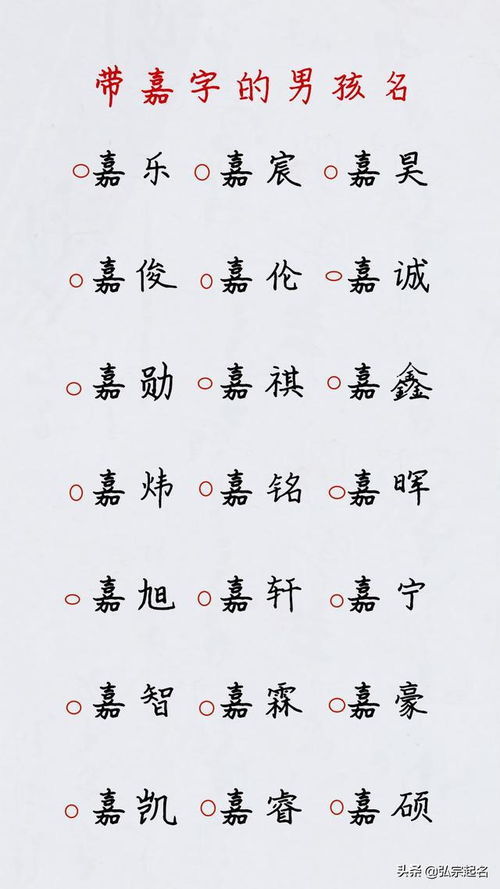 带嘉字的男孩名
○嘉乐 ○嘉宸 ○嘉昊
○嘉俊 ○嘉伦 ○嘉诚
○嘉勋 ○嘉祺 ○嘉鑫
○嘉炜 ○嘉铭 ○嘉晖
○嘉旭 ○嘉轩 ○嘉宁
○嘉智 ○嘉霖 ○嘉豪
○嘉凯 ○嘉睿 ○嘉硕
头条 @弘宗起名